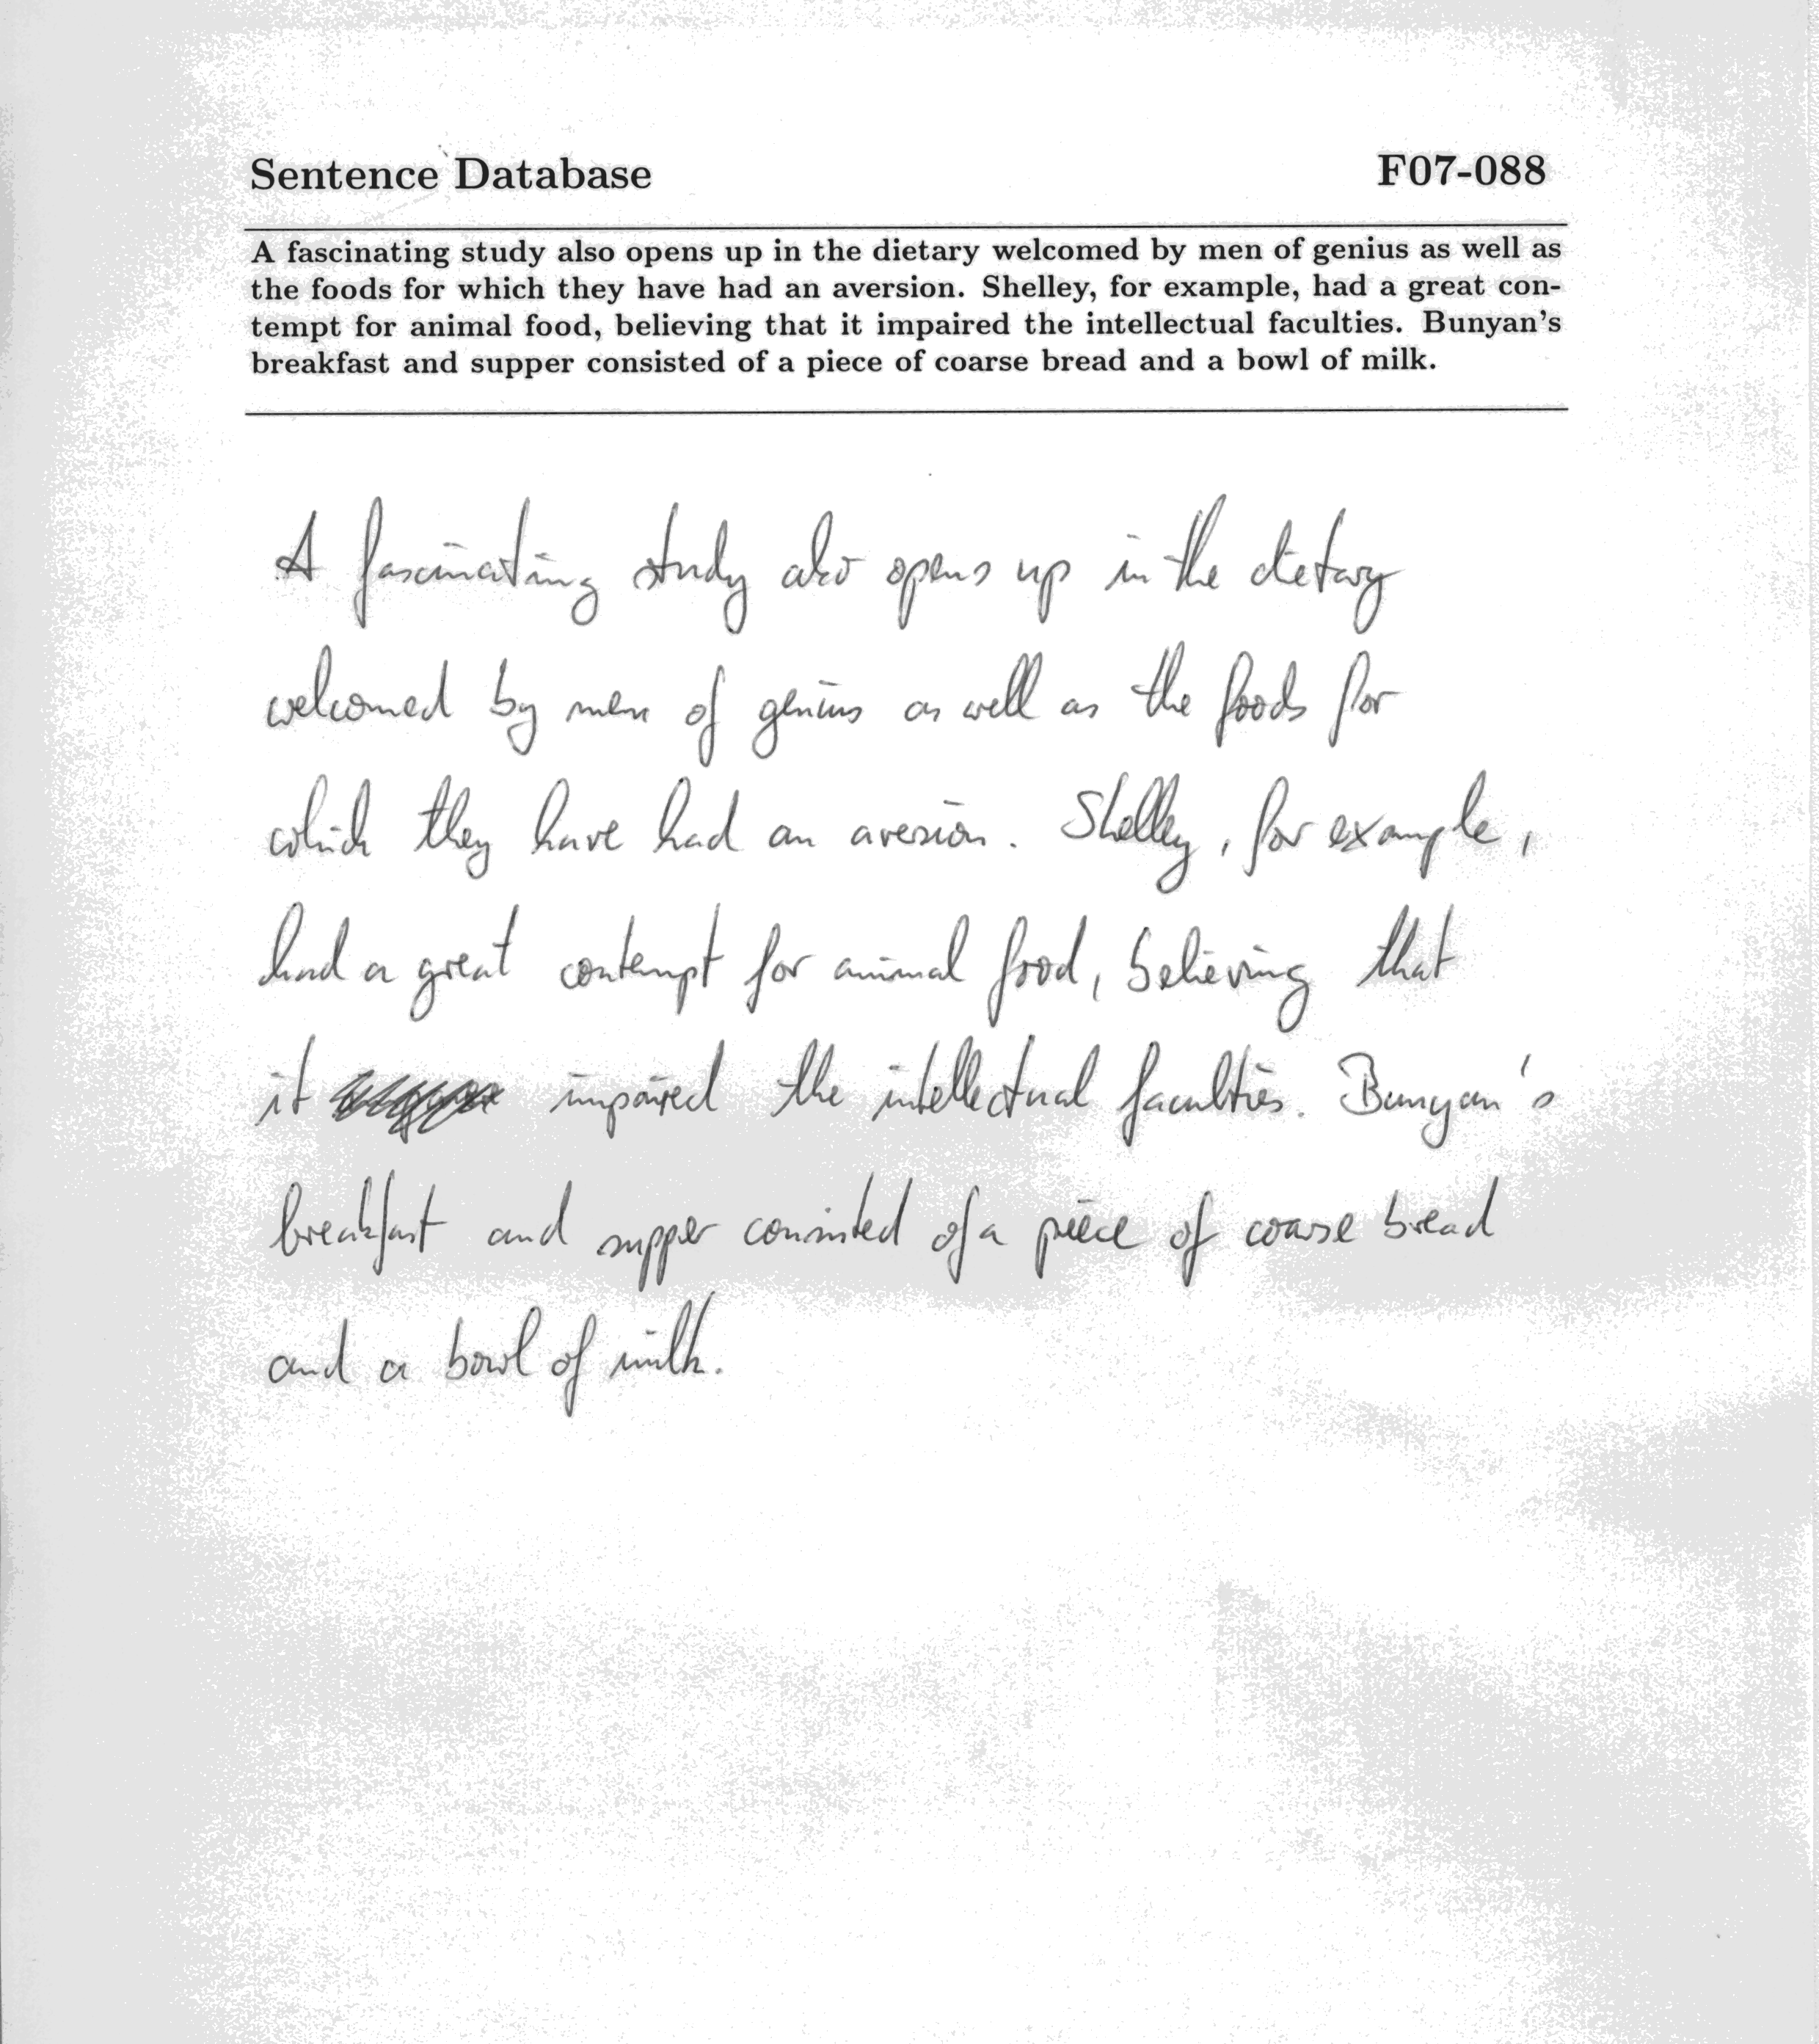 Sentence Database F07-088
A fascinating study also opens up in the dietary welcomed by men of genius as well as
the foods for which they have had an aversion. Shelley, for example, had a great con-
tempt for animal food, believing that it impaired the intellectual faculties. Bunyan's
breakfast and supper consisted of a piece of coarse bread and a bowl of milk.
A fascinating study also opens up in the dietary
welcomed by men of genius as well as the foods for
which they have had an aversion. Shelley, for example,
had a great contempt for animal food, believing that
it impaired the intellectual faculties. Bunyan's
breakfast and supper consisted of a piece of coarse bread
and a bowl of milk.